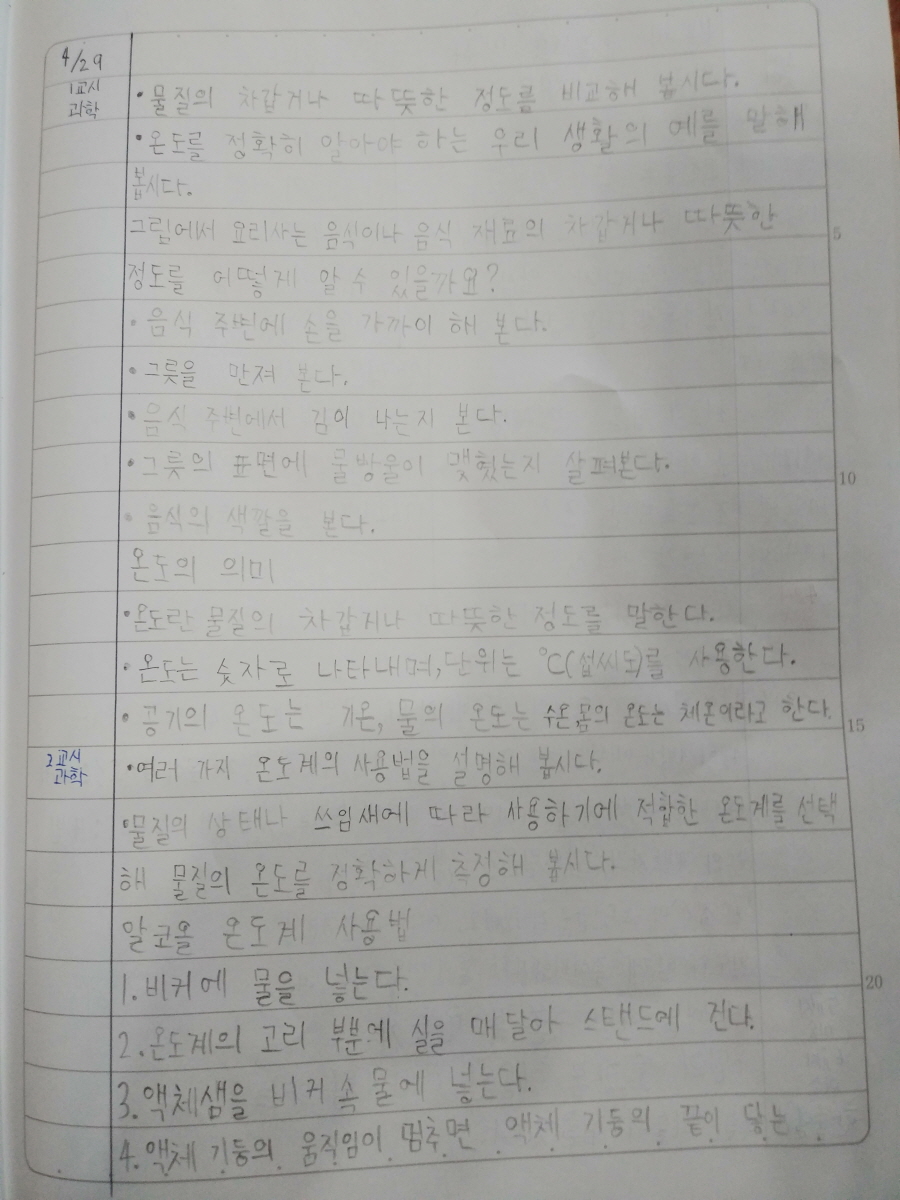 4/29
1교시
과학
• 물질의 차갑거나 따뜻한 정도를 비교해 봅시다.
• 온도를 정확히 알아야 하는 우리 생활의 예를 말해
봅시다.
그림에서 요리사는 음식이나 음식 재료의 차갑거나 따뜻한
5
정도를 어떻게 알 수 있을까요?
• 음식 주변에 손을 가까이 해 본다.
• 그릇을 만져 본다.
• 음식 주변에서 김이 나는지 본다.
• 그릇의 표면에 물방울이 맺혔는지 살펴본다.
10
• 음식의 색깔을 본다.
온도의 의미
• 온도란 물질의 차갑거나 따뜻한 정도를 말한다.
• 온도는 숫자로 나타내며, 단위는 ℃(섭씨도)를 사용한다.
• 공기의 온도는 기온, 물의 온도는 수온, 몸의 온도는 체온이라고 한다.
15
2교시
과학
• 여러 가지 온도계의 사용법을 설명해 봅시다.
• 물질의 상태나 쓰임새에 따라 사용하기에 적합한 온도계를 선택
해 물질의 온도를 정확하게 측정해 봅시다.
알코올 온도계 사용법
1. 비커에 물을 넣는다.
20
2. 온도계의 고리 부분에 실을 매달아 스탠드에 건다.
3. 액체샘을 비커 속 물에 넣는다.
4. 액체 기둥의 움직임이 멈추면 액체 기둥의 끝이 닿는